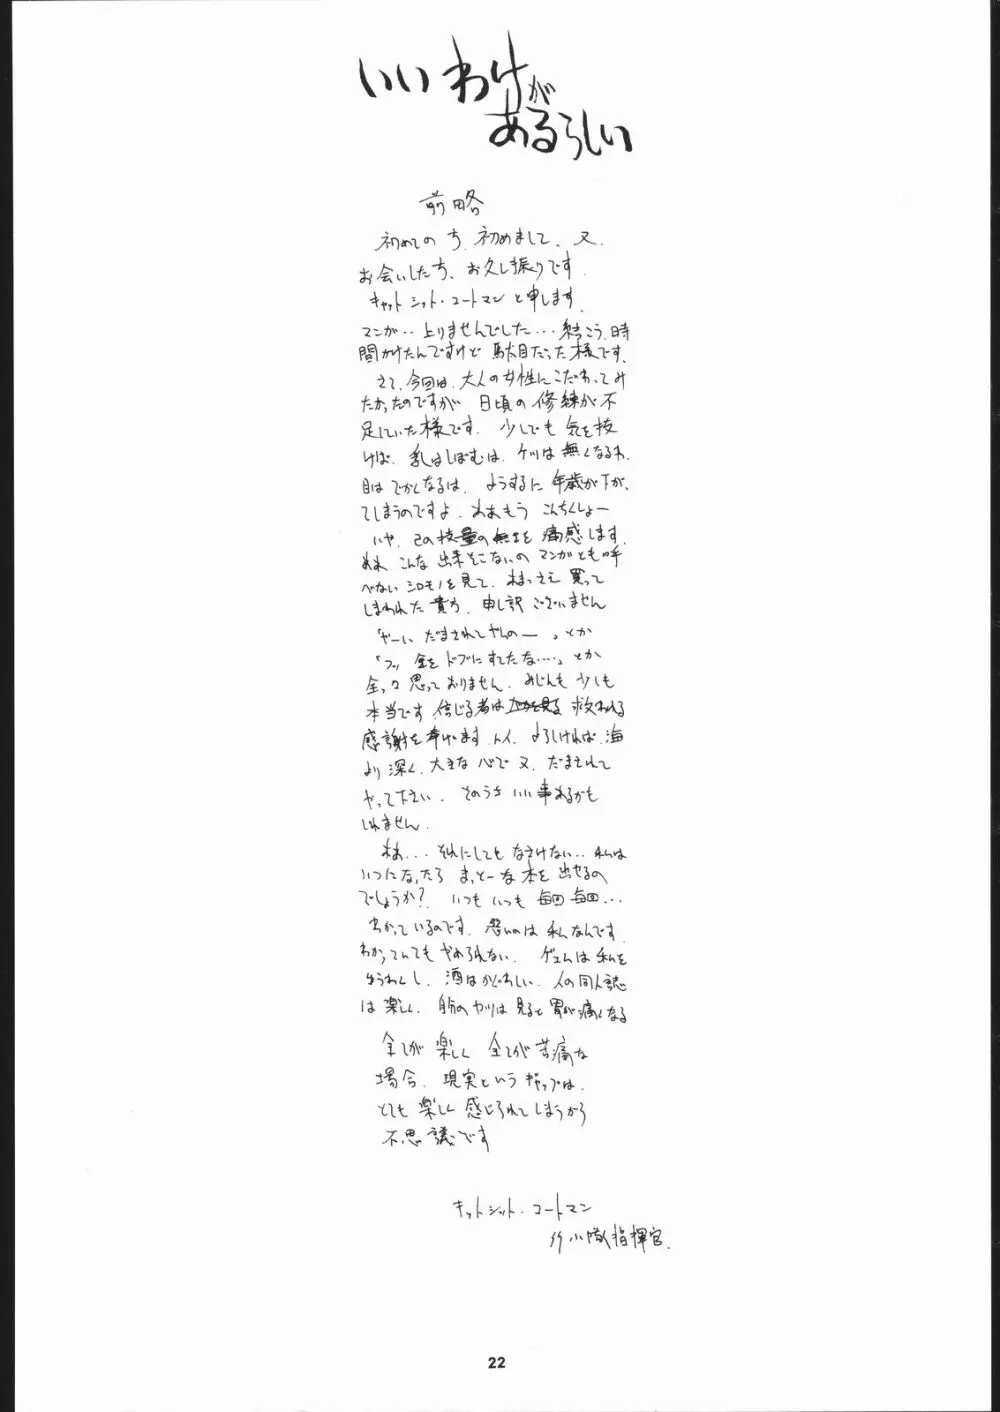 いいわけが
あるらしい
前略
初めての方、初めまして、又、
お会いした方、お久し振りです。
キャットシット・コートマンと申します。
マンガ‥上りませんでした…結こう、時
間かけたんですけど駄目だった様です。
さて、今回は、大人の女性にこだわってみ
たかったのですが 日頃の修練が不
足していた様です。少しでも気を抜
けば、乳はしぼむは、ケツは無くなるわ、
目はでかくなるは、ようするに年歳が下が、
てしまうのですよ。ああもう こんちくしょー
いや、己の技量の無さを痛感します。
ああ、こんな出来そこないのマンガとも呼
べないシロモノを見て、まっさえ買って
しまわれた貴方、申し訳ございません
「やーい、だまされてやんのー」とか
「フッ 金をドブにすてたな…」とか
全っ々思っておりません。みじんも少しも
本当です。信じる者は 救われる
感謝を奉げます。人人、よろしければ、海
より深く、大きな心で又、だまされて
やって下さい。そのうちいい事あるかも
しれません。
まあ… それにしてもなさけない‥私は
いつになったらまっとーな本を出せるの
でしょうか? いつもいつも毎回毎回…
わかっているのです。悪いのは私なんです。
わかってんてもやめられない。ゲームは私を
ゆうわくし、酒はかぐわしい、人の同人誌
は楽しく、自分のヤツは見ると胃が痛くなる
全てが楽しく 全てが苦痛な
場合、現実というギャップは、
とても楽しく感じられてしまうから
不思議です
キャットシット・コートマン
小隊指揮官。
22